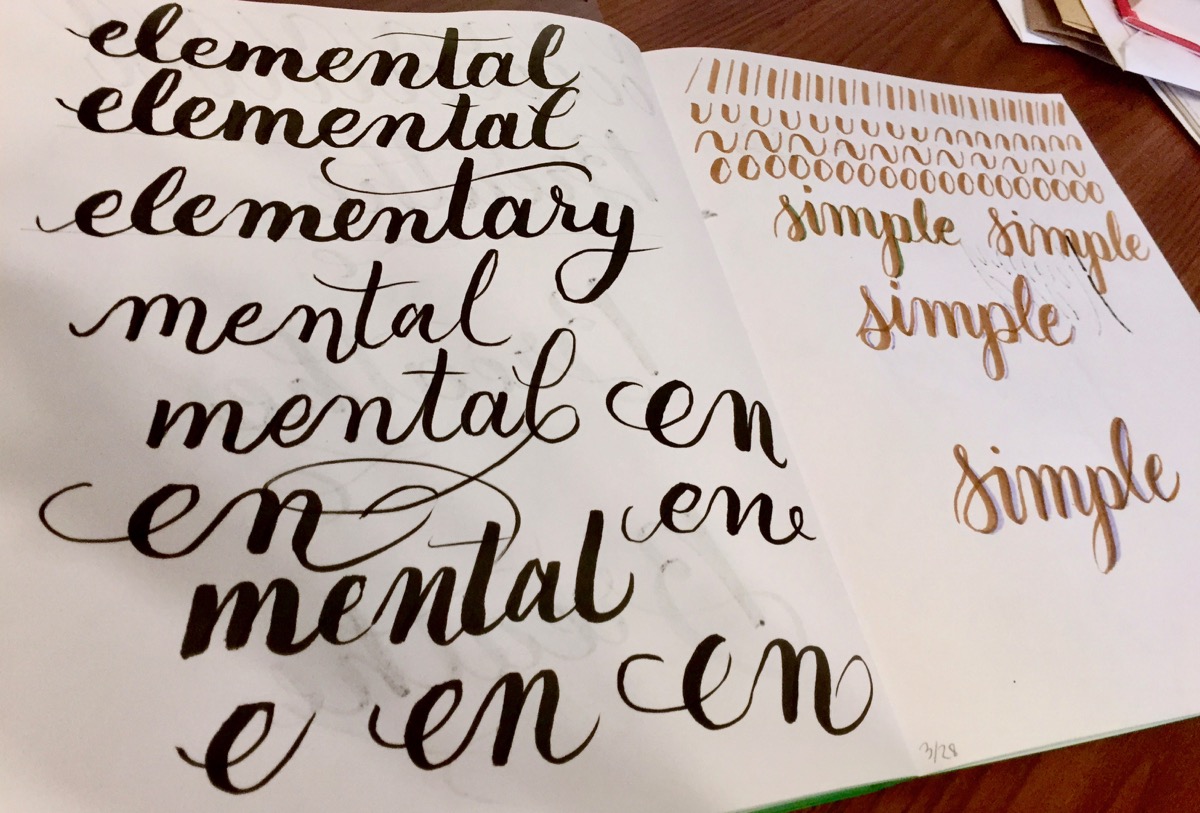 elemental
elemental
elementary
mental
mental en
en en
mental
e en en
simple simple
simple
simple
3/28